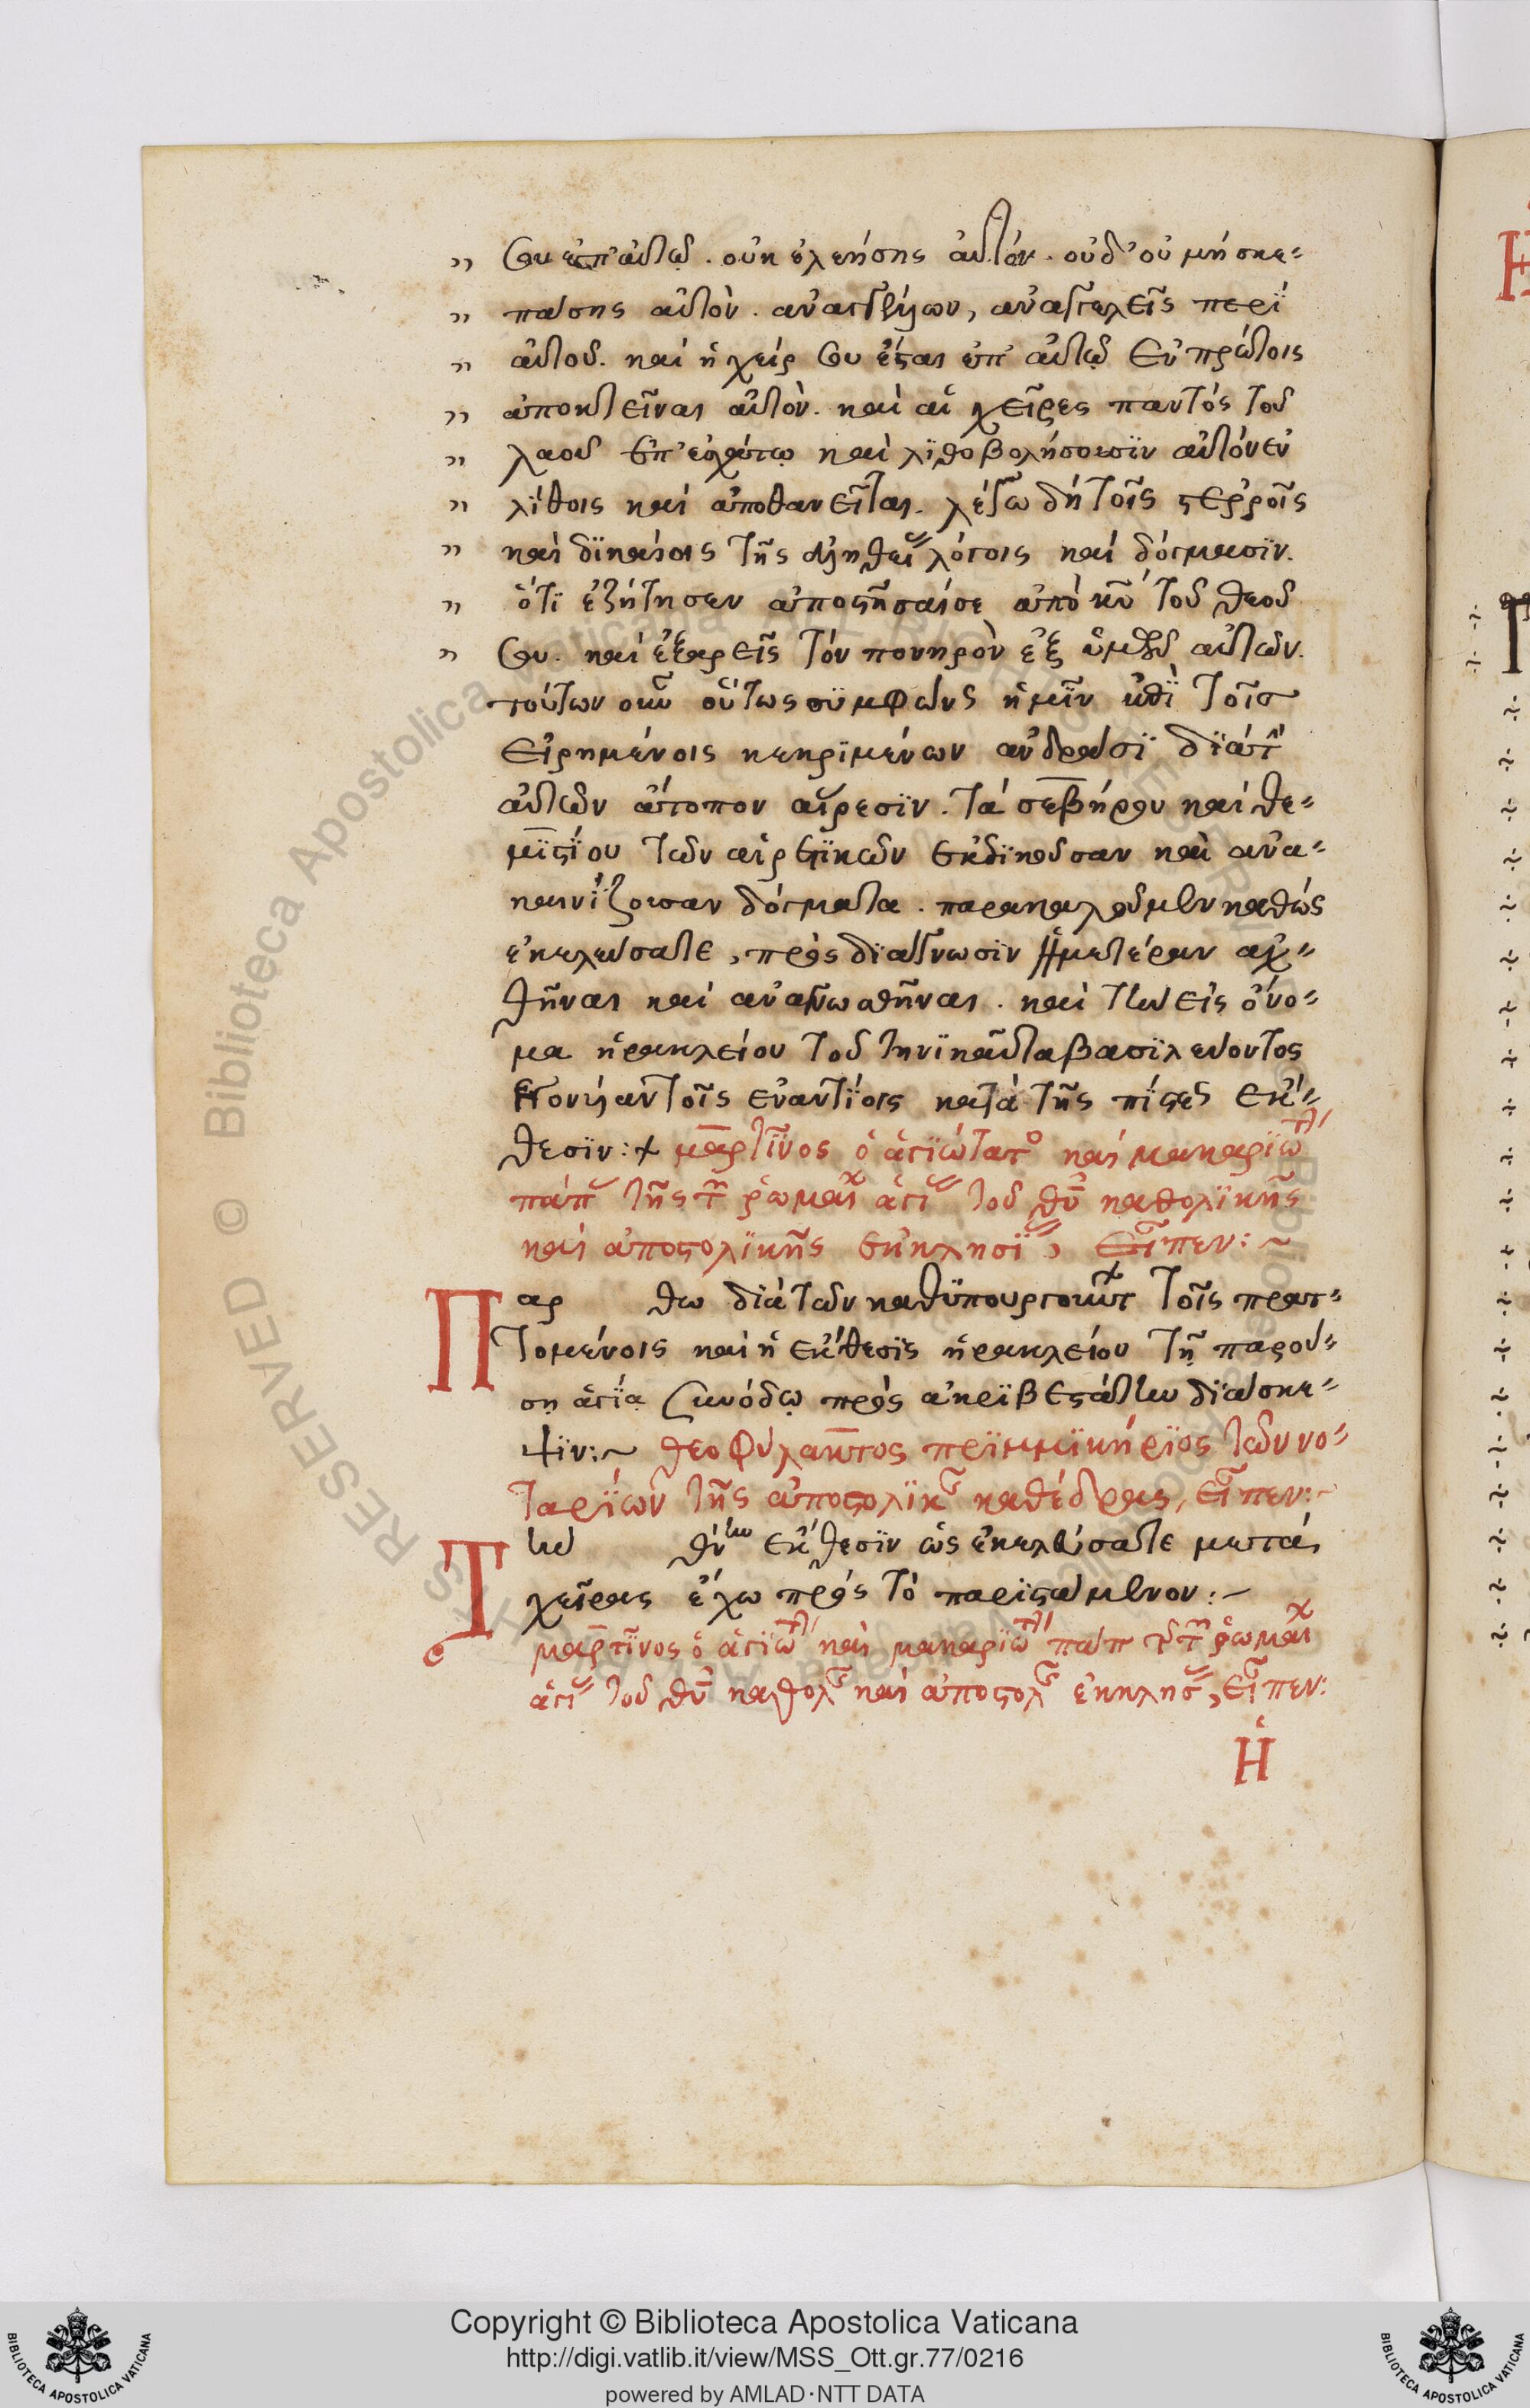 σου ἐπ' αὐτῷ. οὐκ ἐλεήσης αὐτόν. οὐδ' οὐ μή σκε-
πάσης αὐτὸν. ἀναγγέλλων, ἀναγγελεῖς περῒ
αὐτοῦ. καὶ ἡ χείρ σου ἔσται ἐπ' αὐτῷ ἐν πρώτοις
ἀποκτεῖναι αὐτὸν. καὶ αἱ χεῖρες παντός τοῦ
λαοῦ ἐπ' ἐσχάτῳ καὶ λϊθοβολήσουσϊν αὐτόν ἐν
λίθοις καὶ ἀποθανεῖται. λέγω δή τοῖς στερροῖς
καὶ δϊκαίοις τῆς ἀληθείας λόγοις καὶ δόγμασϊν.
ὅτϊ ἐζήτησεν ἀποστῆσαί σε ἀπὸ κυ τοῦ θεοῦ
σου. καὶ ἐξαρεῖς τόν πονηρὸν ἐξ ὑμῶν αὐτῶν.
τούτων οὖν οὕτως συμφώνως ἡμῖν ἐπῒ τοῖς
εἰρημένοις κεκρϊμένων ἀνδράσϊ διὰ τὴν
αὐτῶν ἄτοπον αἵρεσϊν. τά σεβήρου καὶ θε-
μϊστίου τῶν αἱρετϊκῶν ἐκδϊκοῦσαν καὶ ἀνα-
καινίζουσαν δόγματα. παρακαλοῦμεν καθώς
ἐκελεύσατε, πρὸς διάγνωσϊν ἡμετέραν ἀχ-
θῆναι καὶ ἀναγνωσθῆναι. καὶ τὴν εἰς ὄνο-
μα ἡρακλείου τοῦ τηνϊκαῦτα βασϊλεύοντος
τοῖς ἐναντίοις κατὰ τῆς πίστεως ἔκ-
θεσϊν:+ μαρτῖνος ὁ ἁγϊώτατο καὶ μακαρϊωτ
πάπ τῆς τ ῥωμαι ἁγι τοῦ θυ καθολϊκῆς
καὶ ἀποστολϊκῆς ἐκκλησϊ, εἶπεν:~
Παρ θω διὰ τῶν καθϋπουργουντ τοῖς πρατ-
τομένοις καὶ ἡ ἔκθεσϊς ἡρακλείου τῇ παρού-
ση ἁγίᾳ συνόδῳ πρὸς ἀκρϊβεστάτην διάσκε-
ψϊν:~ θεοφύλακτος πρϊμμϊκήρϊος τῶν νο-
ταρΐων τῆς ἀποστολϊκ καθέδρας, εἶπεν:~
Τὴν θν ἔκθεσϊν ὡς ἐκελεύσατε μετὰ
χεῖρας ἔχω πρὸς τὸ παρϊστάμενον:~
μαρτῖνος ὁ ἁγϊωτ καὶ μακαρϊωτ πάπ τ τ ῥωμαι
ἁγι τοῦ θυ καθολ καὶ ἀποστολ ἐκκλησ, εἶπεν:
Ἡ
Copyright © Biblioteca Apostolica Vaticana
http://digi.vatlib.it/view/MSS_Ott.gr.77/0216
powered by AMLAD·NTT DATA
BIBLIOTECA APOSTOLICA VATICANA
BIBLIOTECA APOSTOLICA VATICANA